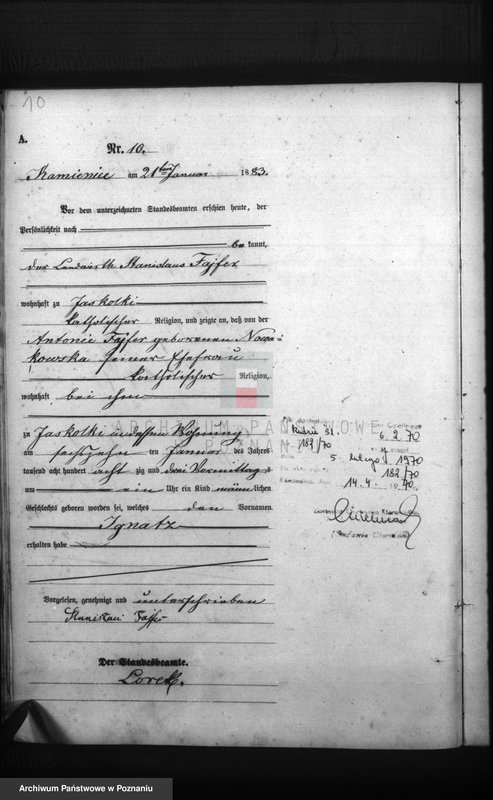 10
A.
Nr. 10.
Kamieniec am 21ten Januar 1883.
Vor dem unterzeichneten Standesbeamten erschien heute, der
Persönlichkeit nach
be kannt,
der Landwirth Stanislaus Fajfer
wohnhaft zu Jaskolki
katholischer Religion, und zeigte an, daß von der
Antonie Fajfer geborenen Nowa-
kowska seiner Ehefrau
katholischer Religion,
wohnhaft bei ihm
ARCHIWUM PAŃSTWOWE
W POZNANIU
zu Jaskolki in dessen Wohnung
am sechszehn ten Januar des Jahres
tausend acht hundert acht zig und drei Vormittags
um ein Uhr ein Kind männ lichen
Geschlechts geboren worden sei, welches den Vornamen
Ignatz
erhalten habe
Vorgelesen, genehmigt und unterschrieben
Stanislaus Fajfer
Der Standesbeamte.
Lorek.
6.2.70
183/70
5 lutego 1970
183/70
14.4. 1970
Archiwum Państwowe w Poznaniu